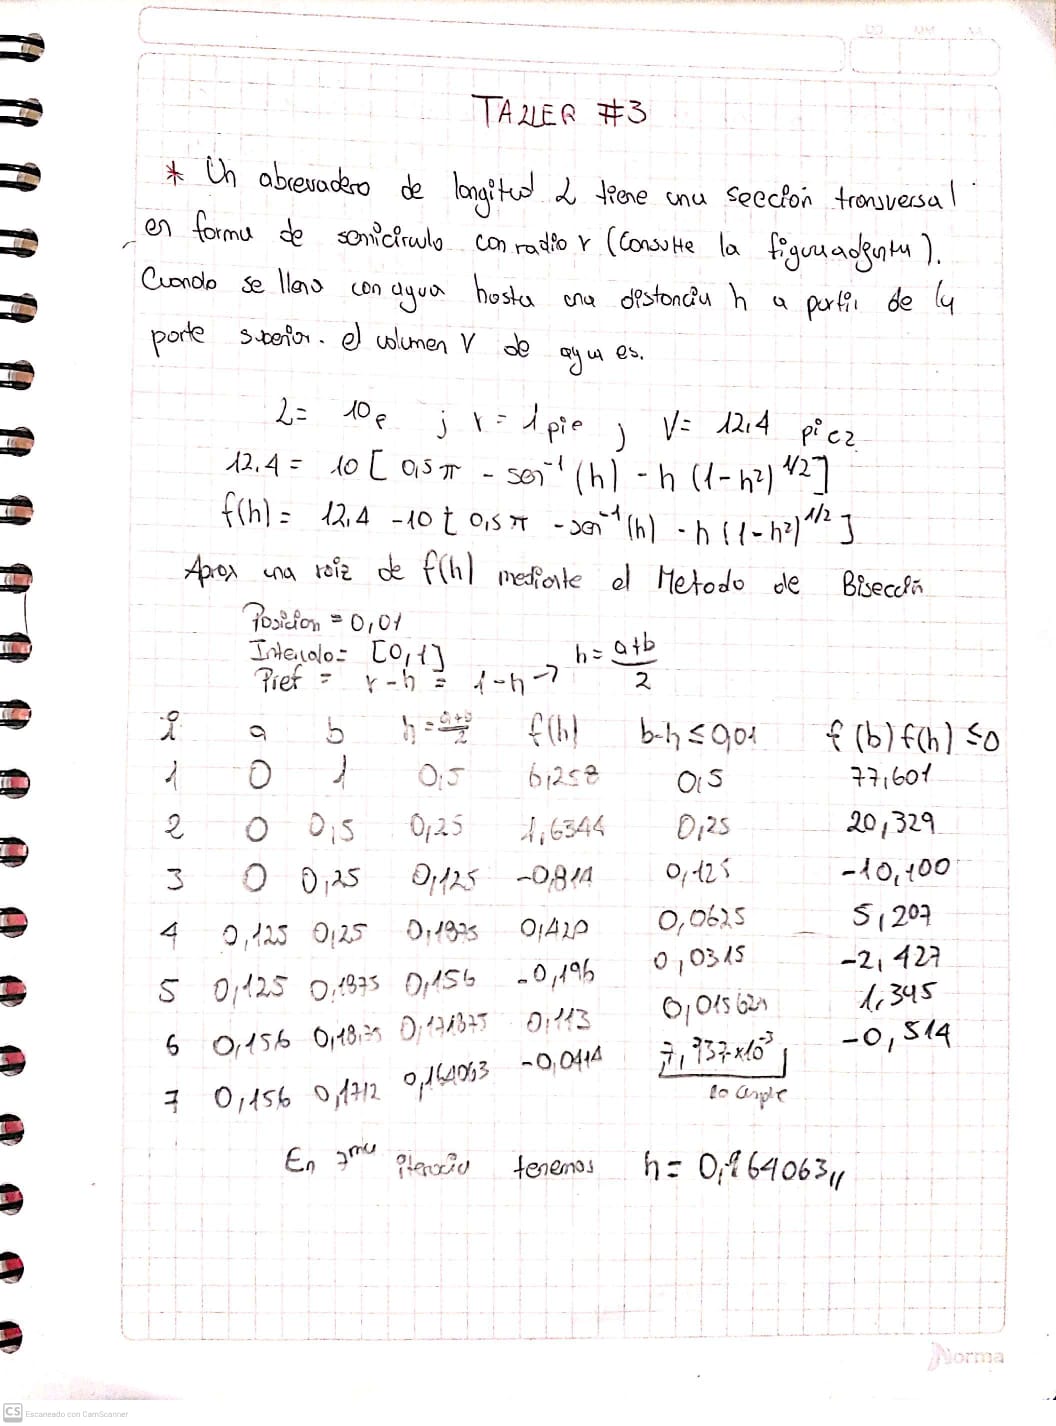 TALLER #3
* Un abrevadero de longitud L tiene una sección transversal
en forma de semicirculo con radio r (Consulte la figura adjunta).
Cuando se llena con agua hasta una distancia h a partir de la
parte superior. el volumen V de agua es.
L= 10p ; r= 1 pie ; V= 12,4 pie2
12.4 = 10 [ 0,5 π - sen⁻¹ (h) - h (1-h²)^1/2]
f(h) = 12,4 -10 [ 0,5 π - sen⁻¹(h) - h (1-h²)^1/2]
Aprox una raiz de f(h) mediante el Metodo de Bisección
Posicion = 0,01
Intervalo= [0,1]
Prof = r-h = 1-h → h= a+b/2
i a b h= a+b/2 f(h) b-h ≤ 0,01 f(b) f(h) ≤0
1 0 1 0,5 6,258 0,5 77,601
2 0 0,5 0,25 1,6344 0,25 20,329
3 0 0,25 0,125 -0,814 0,125 -10,100
4 0,125 0,25 0,1875 0,420 0,0625 5,207
5 0,125 0,1875 0,156 -0,196 0,0315 -2,427
6 0,156 0,1875 0,171875 0,113 0,015624 1,345
7 0,156 0,1712 0,164063 -0,0414 7,937x10⁻³ -0,514
lo cumple
En 7ma iteracio tenemos h= 0,164063,,
Norma
CS Escaneado con CamScanner